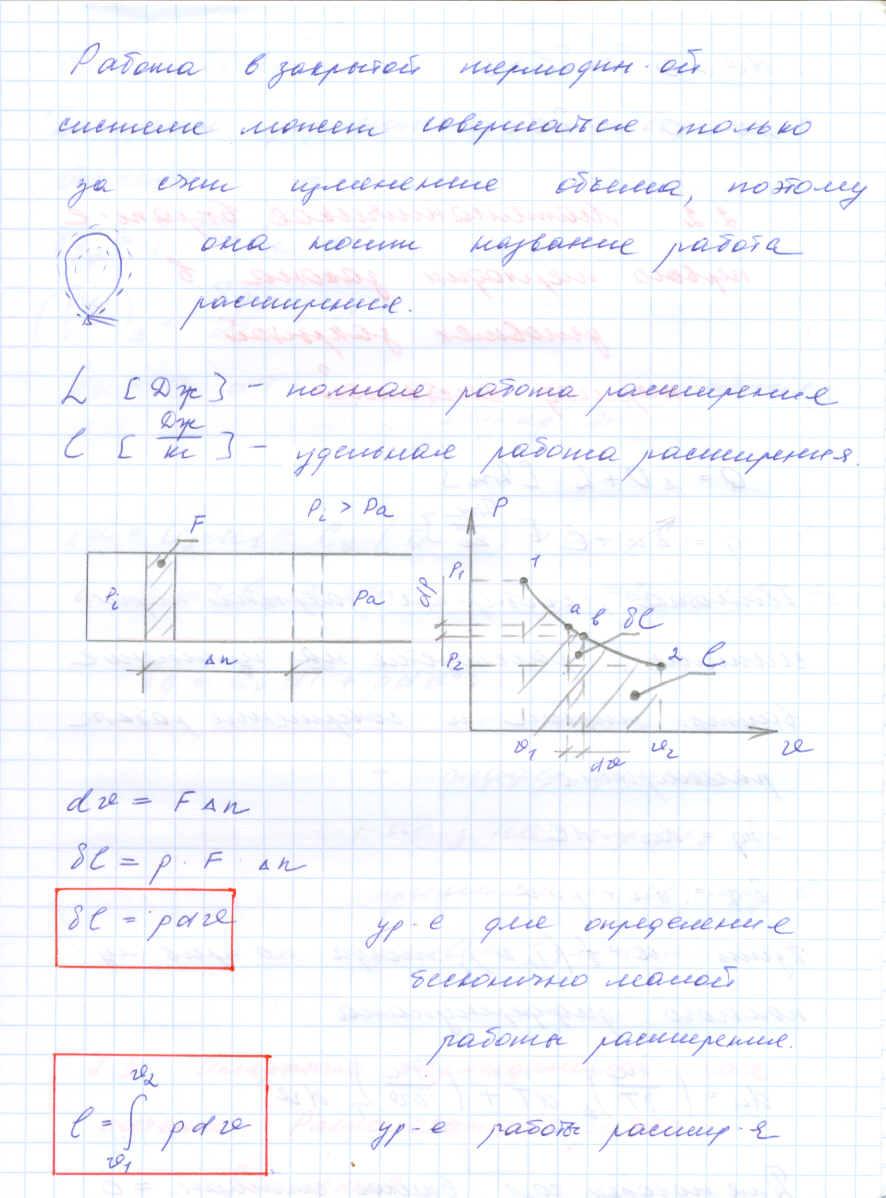 Работа в закрытой термодин-ой
системе может совершаться только
за счет изменение объема, поэтому
она носит название работа
расширения.
L [Дж] – полная работа расширения
l [Дж/кг] – удельная работа расширения.
F
Pi > Pa
Pi
Pa
Δn
P
P1
dP
P2
1
a
в
δl
2
l
v1
dv
v2
v
dv = F Δn
δl = p · F · Δn
δl = pdv ур-е для определения
бесконично малой
работы расширения.
l = ∫ v1 v2 pdv ур-е работы расшир-я